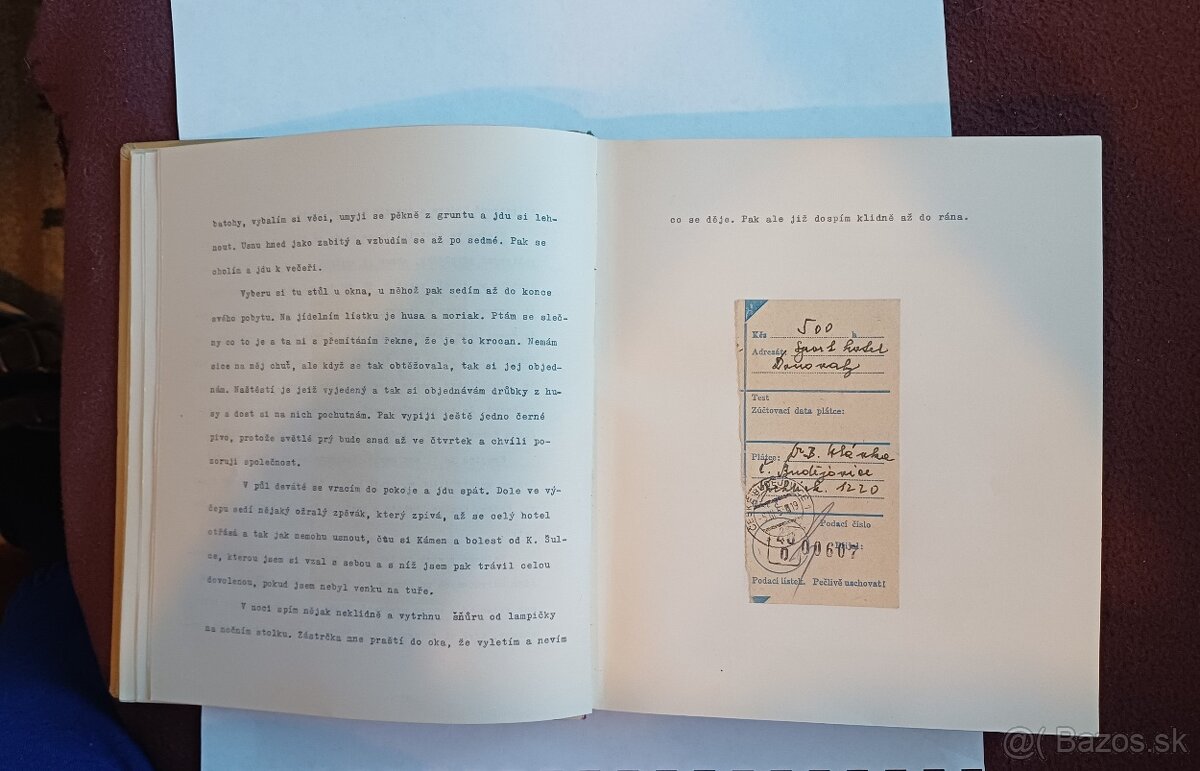 batohy, vybalím si věci, umyji se pěkně z gruntu a jdu si leh-
nout. Usnu hned jako zabitý a vzbudím se až po sedmé. Pak se
oholím a jdu k večeři.
Vyberu si tu stůl u okna, u něhož pak sedím až do konce
svého pobytu. Na jídelním lístku je husa a moriak. Ptám se sleč-
ny co to je a ta mi s přemítáním řekne, že je to krocan. Nemám
sice na měj chuť, ale když se tak obtěžovala, tak si jej objed-
nám. Naštěstí je jeiž vyjedený a tak si objednávám drůbky z hu-
sy a dost si na nich pochutnám. Pak vypiji ještě jedno černé
pivo, protože světlé prý bude snad až ve čtvrtek a chvíli po-
zoruji společnost.
V půl deváté se vracím do pokoje a jdu spát. Dole ve vý-
čepu sedí nějaký ožralý zpěvák, který zpívá, až se celý hotel
otřásá a tak jak nemohu usnout, čtu si Kámen a bolest od K. Šul-
ce, kterou jsem si vzal s sebou a s níž jsem pak trávil celou
dovolenou, pokud jsem nebyl venku na tuře.
V noci spím nějak neklidně a vytrhnu šňůru od lampičky
na nočním stolku. Zástrčka mne praští do oka, že vyletím a nevím
co se děje. Pak ale již dospím klidně až do rána.
Kčs 500 h
Adresát: Sport hotel
Donovaly
Text
Zúčtovací data plátce:
Plátce: Dr. B.
Č. Budějovice
1220
Podací číslo
00607
Podací lístek. Pečlivě uschovati
@( Bazos.sk